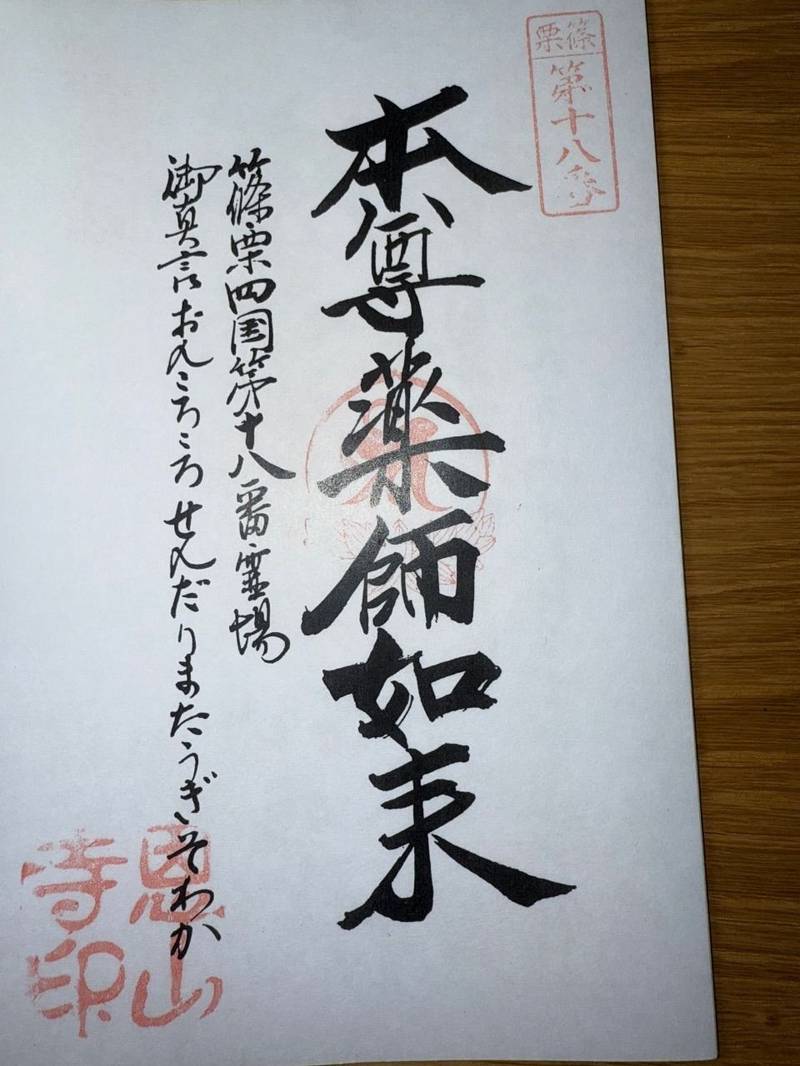 篠栗
第十八番
本尊薬師如来
篠栗四国第十八番霊場
御真言おんころころせんだりまたうぎそわか
恩山
寺印